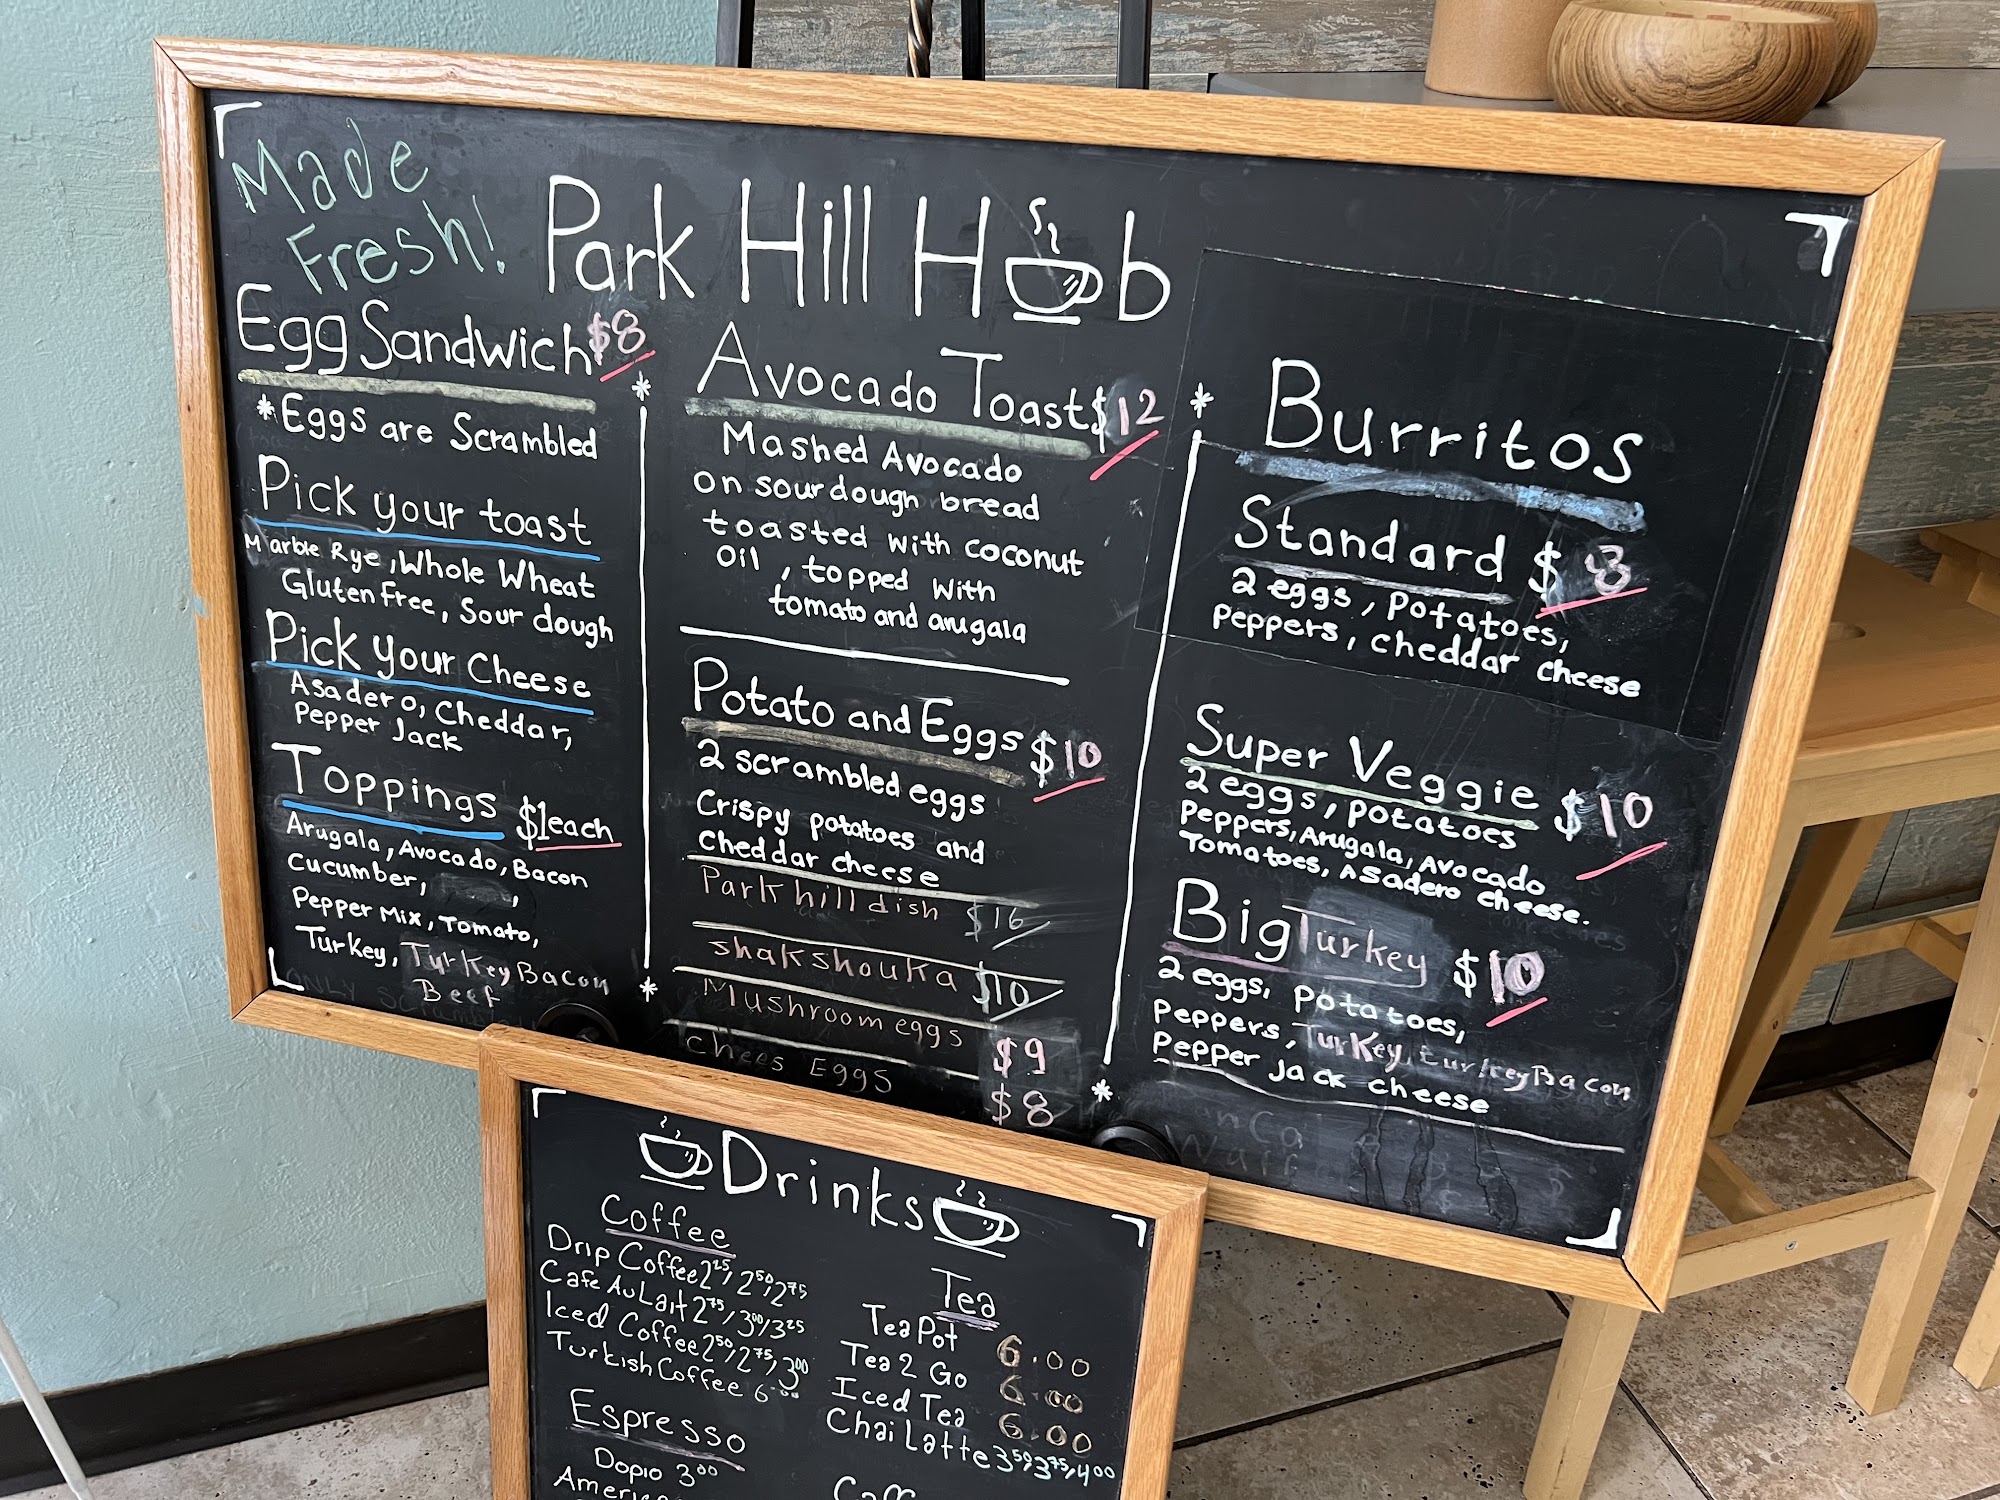 Made
Fresh!
Park Hill Hub
Egg Sandwich $8
*Eggs are Scrambled
Pick your toast
Marble Rye, Whole Wheat
Gluten Free, Sour dough
Pick your Cheese
Asadero, Cheddar,
Pepper Jack
Toppings $1each
Arugala, Avocado, Bacon
Cucumber, ,
Pepper Mix, Tomato,
Turkey, Turkey Bacon
Beef
ONLY
Avocado Toast $12
Mashed Avocado
on sourdough bread
toasted with coconut
oil, topped with
tomato and arugala
Potato and Eggs $10
2 scrambled eggs
Crispy potatoes and
cheddar cheese
Park hill dish $16
shakshouka $10
Mushroom eggs $9
chees Eggs $8
* Burritos
Standard $8
2 eggs, potatoes,
peppers, cheddar cheese
Super Veggie $10
2 eggs, potatoes
Peppers, Arugala, Avocado
Tomatoes, Asadero cheese.
Big Turkey $10
2 eggs, potatoes,
Peppers, Turkey, turkey Bacon
Pepper Jack cheese
Drinks
Coffee
Drip Coffee 2.25, 2.50, 2.75
Cafe Au Lait 2.75, 3.00, 3.25
Iced Coffee 2.50, 2.75, 3.00
Turkish Coffee 6.00
Espresso
Dopio 3.00
Tea
Tea Pot 6.00
Tea 2 Go 6.00
Iced Tea 6.00
Chai Latte 3.50, 3.75, 4.00